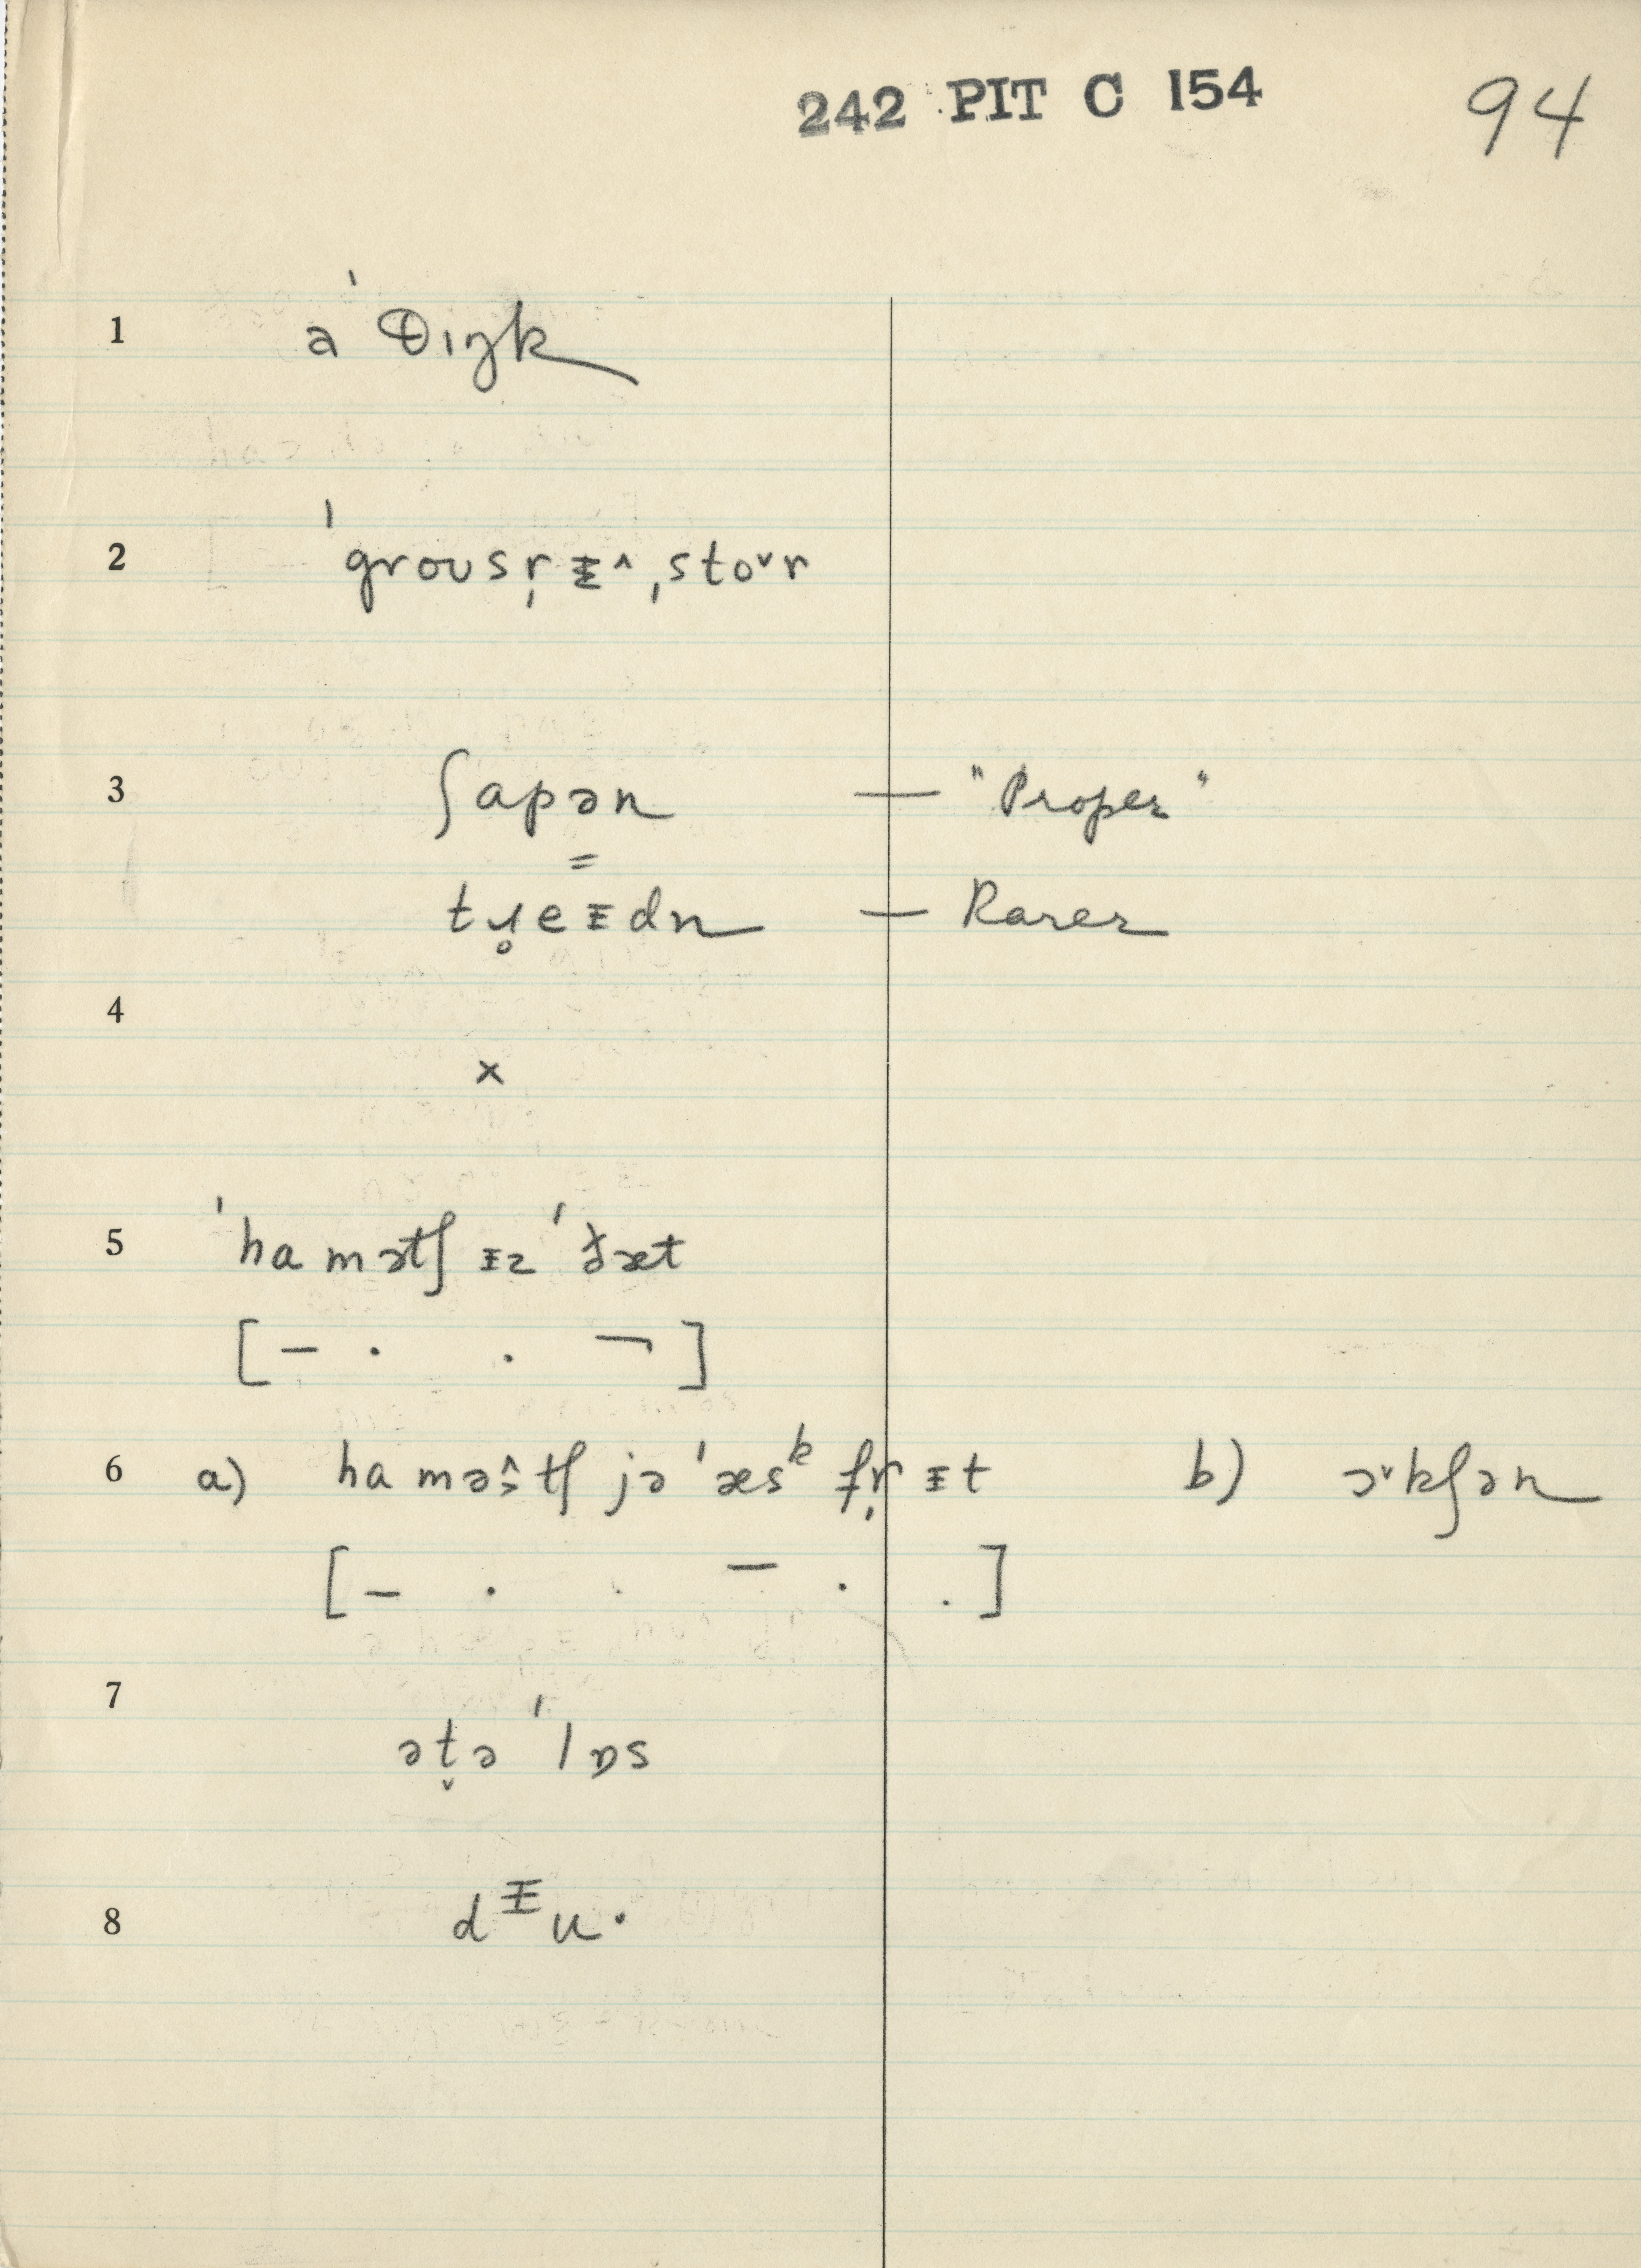 242 PIT C 154 94
1 a ˈθɪŋk
2 ˈgroʊsr̩ᵻ^ ˌstoˇr
3 ʃapən — "Proper"
=
tɹ̥eᵻdn — Rarer
4
x
5 ˈhamətʃ ᵻz ˈðæt
[– · · ¬]
6 a) hamə^s̬tʃ jə ˈæsᵏ fr̩ ᵻt b) ɔˇkʃən
[– · · – · ·]
7
ət̬ə ˈlɒs
8 dᵻu·